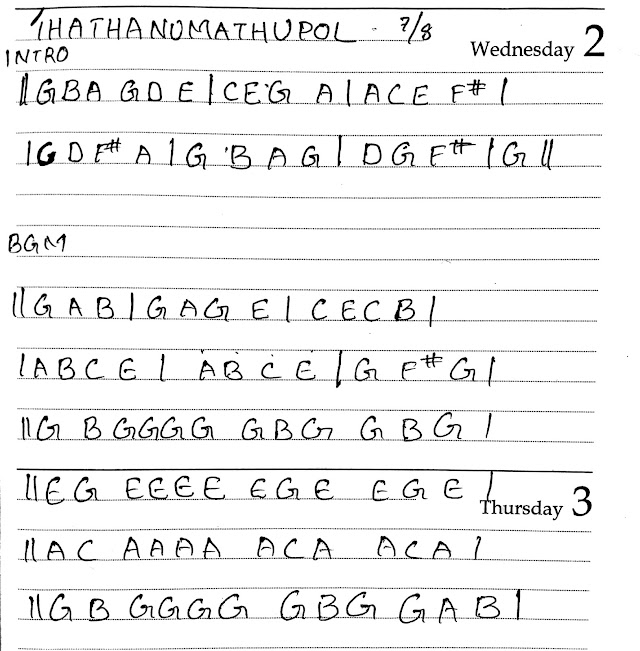 THATHANUMATHUPOL - 7/8
Wednesday 2
INTRO
||GBA GDE|CEG A|ACE F#|
|GDF# A|G BAG|DGF#|G||
BGM
||GAB|GAGE|CECB|
|ABCE|ABCE|GF#G|
||G B GGGG GBG GBG|
||EG EEEE EGE EGE|
Thursday 3
||AC AAAA ACA ACA|
||GB GGGG GBG GAB|